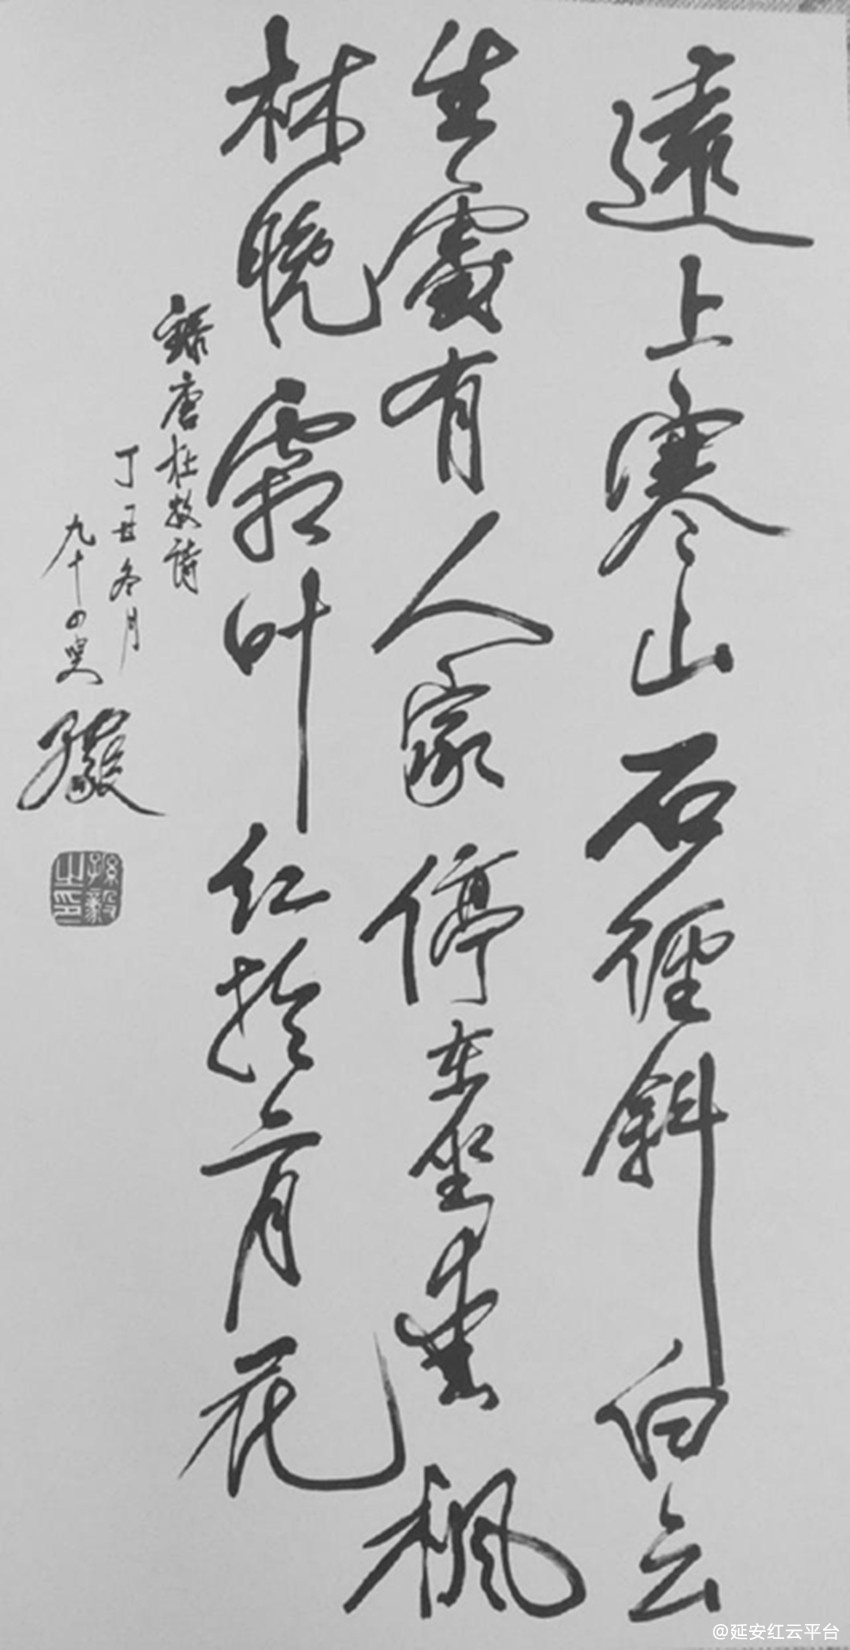 遠上寒山石徑斜白云
生處有人家停车坐爱枫
林晚霜叶红於二月花
錄唐杜牧诗
丁丑冬月
九十四叟
毅
孫毅之印
@延安红云平台